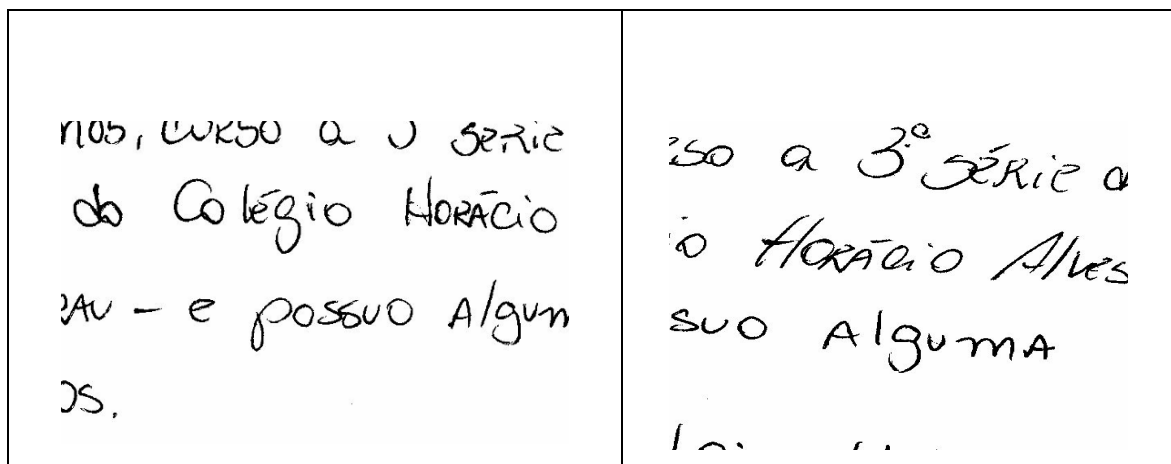 nos, curso a 3 série
do Colégio Horácio
RAU - e possuo Algum
os.
so a 3ª série d
io Horácio Alves
suo AlgumA